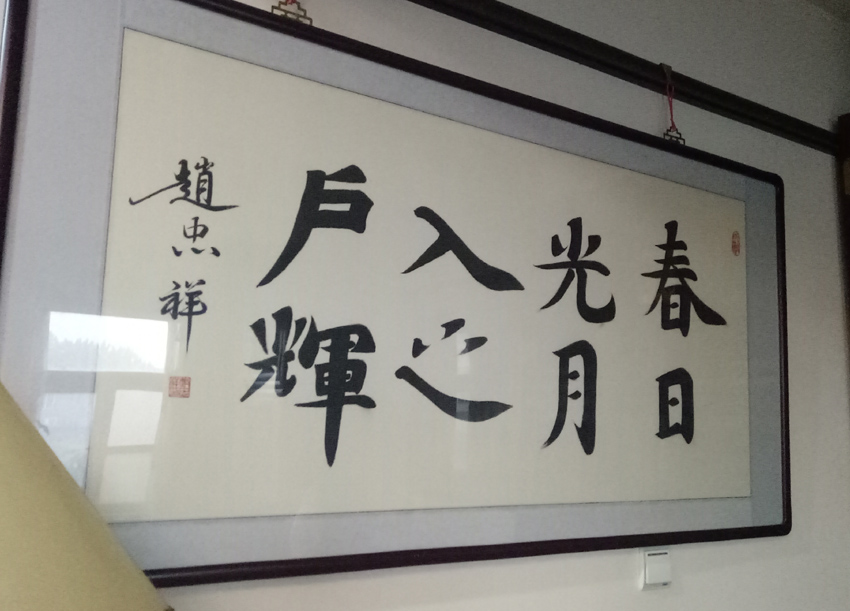 春光入戶
日月之輝
趙忠祥